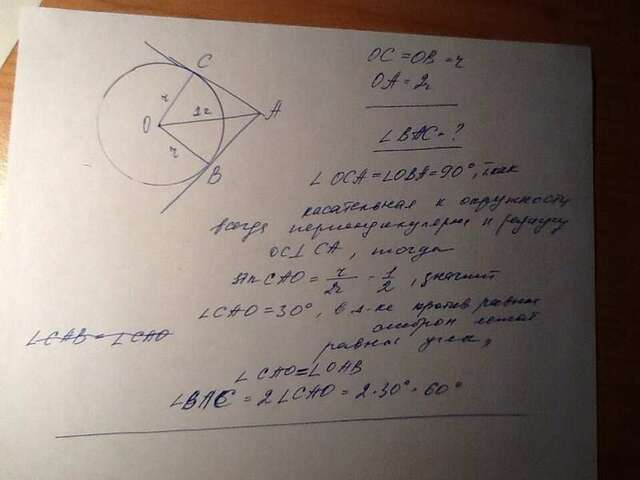 C
OC = OB = r
OA = 2r
r
2r
A
O
∠BAC = ?
r
B
∠OCA = ∠OBA = 90°, т.как
касательная к окружности
всегда перпендикулярна к радиусу
OC⊥CA, тогда
sin CAO = r/2r = 1/2, значит
∠CAO = 30°, в Δ-ке против равных
∠CAB = ∠CAO
сторон лежат
равные углы,
∠CAO = ∠OAB
∠BAC = 2∠CAO = 2·30° = 60°